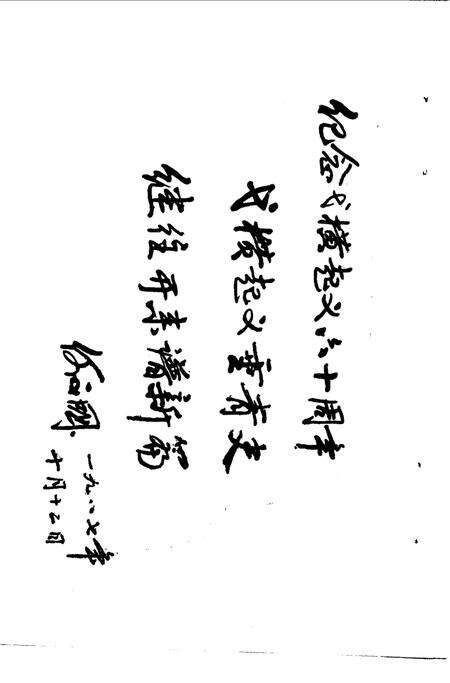 纪念弋横起义六十周年
弋横起义垂青史
继往开来谱新篇
一九八七年
十月十二日